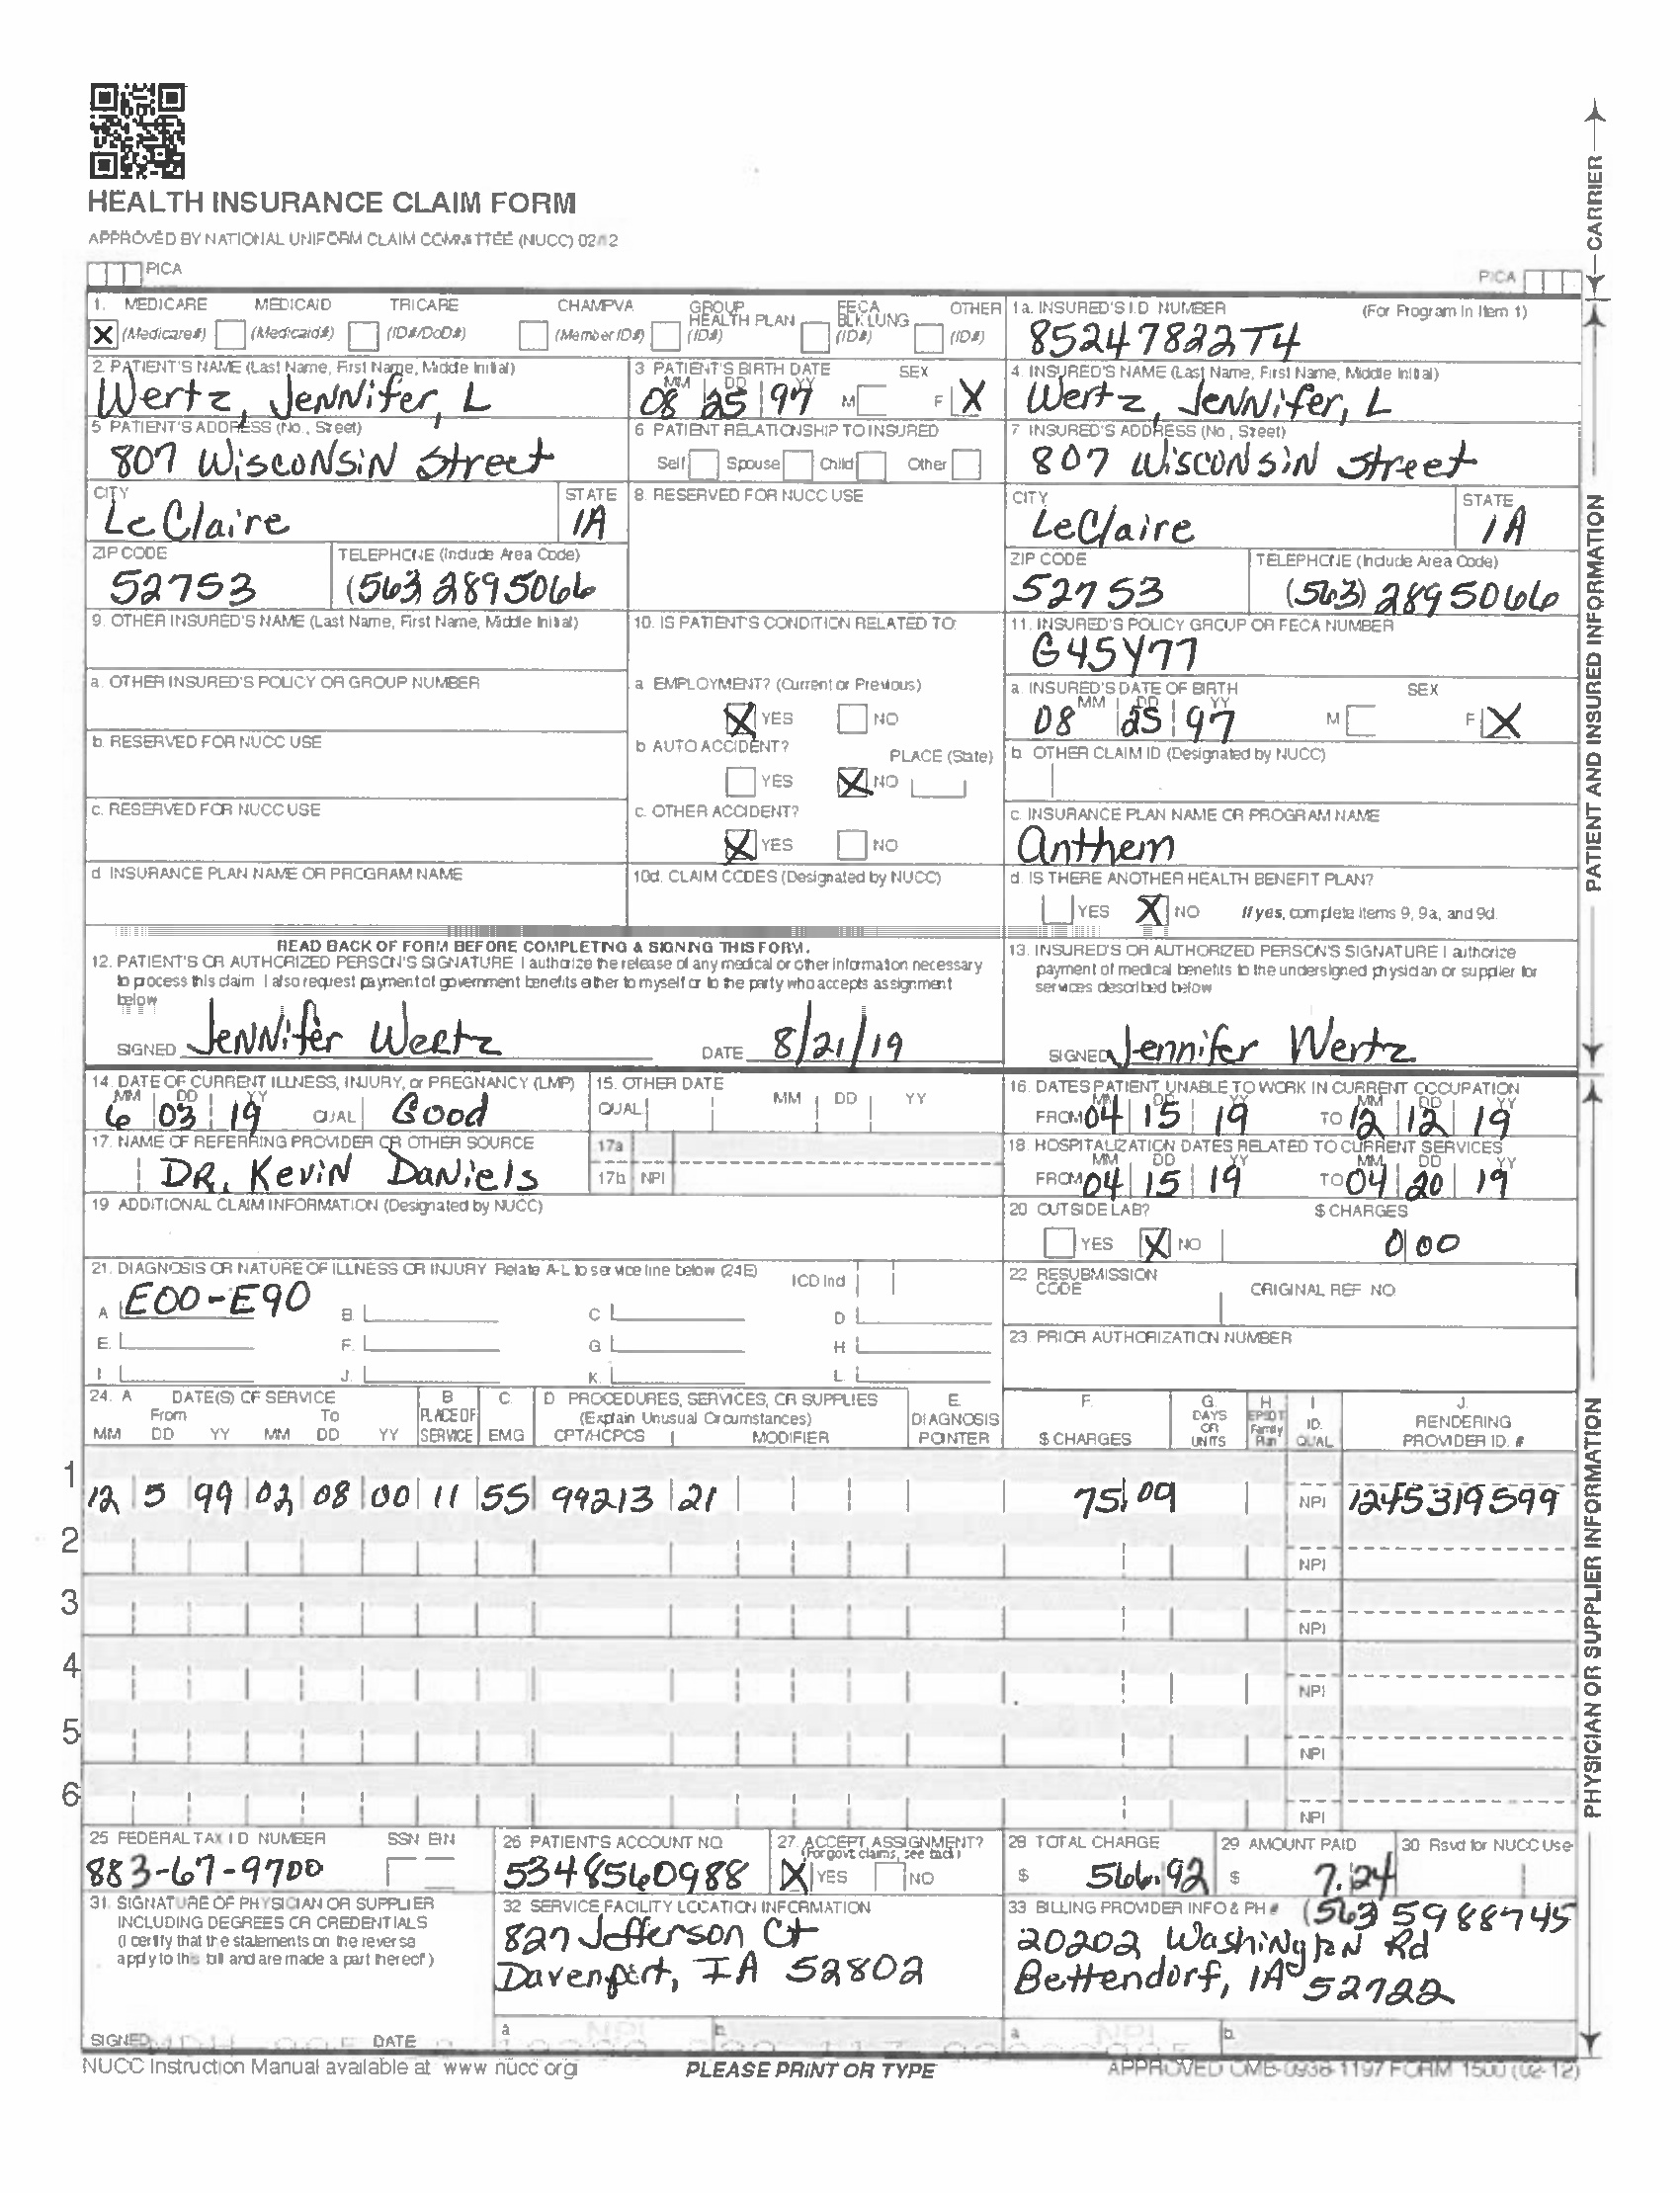 HEALTH INSURANCE CLAIM FORM
APPROVED BY NATIONAL UNIFORM CLAIM COMMITTEE (NUCC) 02/12
PICA
PICA
CARRIER
1. MEDICARE MEDICAID TRICARE CHAMPVA GROUP HEALTH PLAN FECA BLK LUNG OTHER
X (Medicare#) (Medicaid#) (ID#/DoD#) (Member ID#) (ID#) (ID#) (ID#)
1a. INSURED'S I.D. NUMBER (For Program in Item 1)
85247822T4
2. PATIENT'S NAME (Last Name, First Name, Middle Initial)
Wertz, Jennifer, L
3. PATIENT'S BIRTH DATE SEX
MM DD YY
08 25 97 M F X
4. INSURED'S NAME (Last Name, First Name, Middle Initial)
Wertz, Jennifer, L
5. PATIENT'S ADDRESS (No., Street)
807 Wisconsin Street
6. PATIENT RELATIONSHIP TO INSURED
Self Spouse Child Other
7. INSURED'S ADDRESS (No., Street)
807 Wisconsin Street
CITY STATE
LeClaire IA
8. RESERVED FOR NUCC USE
CITY STATE
LeClaire IA
ZIP CODE TELEPHONE (Include Area Code)
52753 (563 2895066
ZIP CODE TELEPHONE (Include Area Code)
52753 (563) 2895066
9. OTHER INSURED'S NAME (Last Name, First Name, Middle Initial)
10. IS PATIENT'S CONDITION RELATED TO:
11. INSURED'S POLICY GROUP OR FECA NUMBER
G45Y77
a. OTHER INSURED'S POLICY OR GROUP NUMBER
a. EMPLOYMENT? (Current or Previous)
X YES NO
a. INSURED'S DATE OF BIRTH SEX
MM DD YY
08 25 97 M F X
b. RESERVED FOR NUCC USE
b. AUTO ACCIDENT? PLACE (State)
YES X NO
b. OTHER CLAIM ID (Designated by NUCC)
c. RESERVED FOR NUCC USE
c. OTHER ACCIDENT?
X YES NO
c. INSURANCE PLAN NAME OR PROGRAM NAME
Anthem
d. INSURANCE PLAN NAME OR PROGRAM NAME
10d. CLAIM CODES (Designated by NUCC)
d. IS THERE ANOTHER HEALTH BENEFIT PLAN?
YES X NO If yes, complete items 9, 9a, and 9d.
PATIENT AND INSURED INFORMATION
READ BACK OF FORM BEFORE COMPLETING & SIGNING THIS FORM.
12. PATIENT'S OR AUTHORIZED PERSON'S SIGNATURE I authorize the release of any medical or other information necessary
to process this claim. I also request payment of government benefits either to myself or to the party who accepts assignment
below.
SIGNED Jennifer Wertz DATE 8/21/19
13. INSURED'S OR AUTHORIZED PERSON'S SIGNATURE I authorize
payment of medical benefits to the undersigned physician or supplier for
services described below.
SIGNED Jennifer Wertz
14. DATE OF CURRENT ILLNESS, INJURY, or PREGNANCY (LMP)
MM DD YY
6 03 19 QUAL. Good
15. OTHER DATE
QUAL. MM DD YY
16. DATES PATIENT UNABLE TO WORK IN CURRENT OCCUPATION
MM DD YY MM DD YY
FROM 04 15 19 TO 12 12 19
17. NAME OF REFERRING PROVIDER OR OTHER SOURCE
DR. Kevin Daniels
17a.
17b. NPI
18. HOSPITALIZATION DATES RELATED TO CURRENT SERVICES
MM DD YY MM DD YY
FROM 04 15 19 TO 04 20 19
19. ADDITIONAL CLAIM INFORMATION (Designated by NUCC)
20. OUTSIDE LAB? $ CHARGES
YES X NO 0 00
21. DIAGNOSIS OR NATURE OF ILLNESS OR INJURY Relate A-L to service line below (24E) ICD Ind.
A. E00-E90 B. C. D.
E. F. G. H.
I. J. K. L.
22. RESUBMISSION CODE ORIGINAL REF. NO.
23. PRIOR AUTHORIZATION NUMBER
24. A. DATE(S) OF SERVICE B. C. D. PROCEDURES, SERVICES, OR SUPPLIES E. F. G. H. I. J.
From To PLACE OF (Explain Unusual Circumstances) DIAGNOSIS DAYS OR UNITS EPSDT Family Plan ID. QUAL. RENDERING
MM DD YY MM DD YY SERVICE EMG CPT/HCPCS MODIFIER POINTER $ CHARGES PROVIDER ID. #
1
12 5 99 02 08 00 11 55 99213 21 75.09 NPI 1245319599
2
NPI
3
NPI
4
NPI
5
NPI
6
NPI
PHYSICIAN OR SUPPLIER INFORMATION
25. FEDERAL TAX I.D. NUMBER SSN EIN
883-67-9700
26. PATIENT'S ACCOUNT NO.
5348560988
27. ACCEPT ASSIGNMENT?
(For govt. claims, see back)
X YES NO
28. TOTAL CHARGE
$ 566.92
29. AMOUNT PAID
$ 7.24
30. Rsvd for NUCC Use
31. SIGNATURE OF PHYSICIAN OR SUPPLIER
INCLUDING DEGREES OR CREDENTIALS
(I certify that the statements on the reverse
apply to this bill and are made a part thereof.)
SIGNED DATE
32. SERVICE FACILITY LOCATION INFORMATION
827 Jefferson Ct
Davenport, IA 52802
a. NPI b.
33. BILLING PROVIDER INFO & PH # (563 5988745
20202 Washington Rd
Bettendorf, IA 52722
a. NPI b.
NUCC Instruction Manual available at: www.nucc.org
PLEASE PRINT OR TYPE
APPROVED OMB-0938-1197 FORM 1500 (02-12)